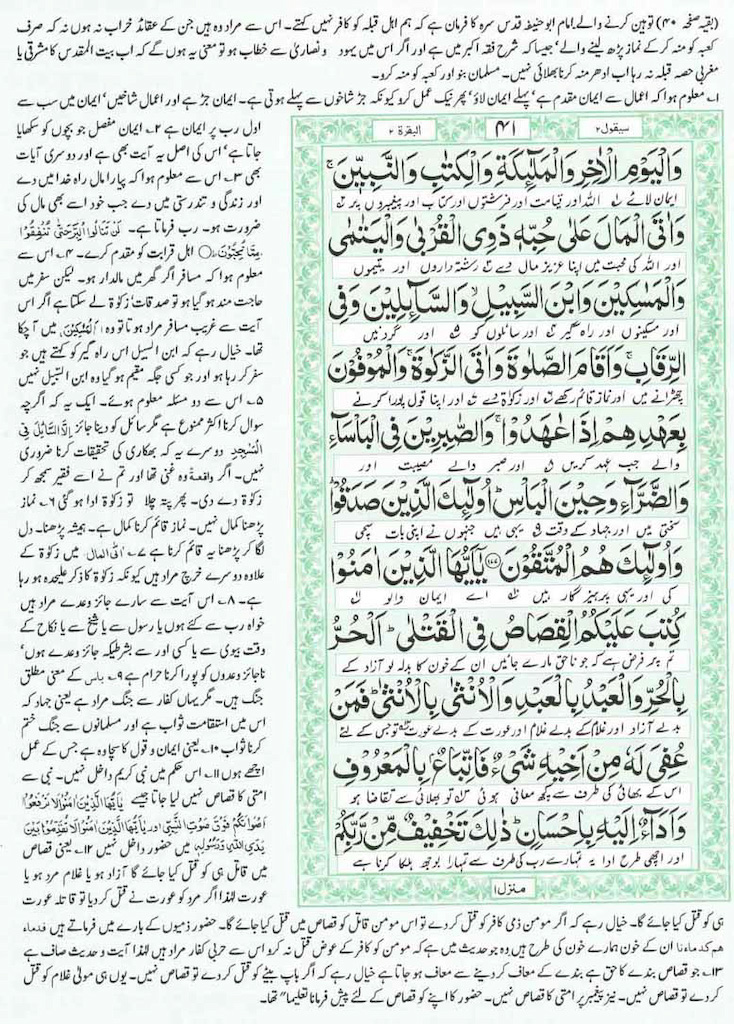 (بقیہ صفحہ ۴۰) توہین کرنے والے۔ امام ابو حنیفہ قدس سرہ کا فرمان ہے کہ ہم اہل قبلہ کو کافر نہیں کہتے۔ اس سے مراد وہ ہیں جن کے عقائد خراب نہ ہوں نہ کہ صرف
کعبہ کو منہ کر کے نماز پڑھ لینے والے' جیسا کہ شرح فقہ اکبر میں ہے اور اگر اس میں یہود و نصاریٰ سے خطاب ہو تو معنی یہ ہوں گے کہ اب بیت المقدس کا مشرقی یا
مغربی حصہ قبلہ نہ رہا اب ادھر منہ کرنا بھلائی نہیں۔ مسلمان بنو اور کعبہ کو منہ کرو۔
۱۔ معلوم ہوا کہ اعمال سے ایمان مقدم ہے' پہلے ایمان لاؤ' پھر نیک عمل کرو کیونکہ جڑ شاخوں سے پہلے ہوتی ہے۔ ایمان جڑ ہے اور اعمال شاخیں' ایمان میں سب سے
اول رب پر ایمان ہے ۲۔ ایمان مفصل جو بچوں کو سکھایا
جاتا ہے' اس کی اصل یہ آیت بھی ہے اور دوسری آیات
بھی ۳۔ اس سے معلوم ہوا کہ پیارا مال راہ خدا میں دے
اور زندگی و تندرستی میں دے جب خود اسے بھی مال کی
ضرورت ہو۔ رب فرماتا ہے۔ لَنْ تَنَالُوا الْبِرَّ حَتّٰى تُنْفِقُوْا
مِمَّا تُحِبُّوْنَ اہل قرابت کو مقدم کرے۔ ۴۔ اس سے
معلوم ہوا کہ مسافر اگر گھر میں مالدار ہو۔ لیکن سفر میں
حاجت مند ہو گیا ہو تو صدقات زکوٰۃ لے سکتا ہے اگر اس
آیت سے غریب مسافر مراد ہوتا تو وہ اَلْمَسٰكِيْن میں آ چکا
تھا۔ خیال رہے کہ ابن السبیل اس راہ گیر کو کہتے ہیں جو
سفر کر رہا ہو اور جو کسی جگہ مقیم ہو گیا وہ ابن السبیل نہیں
۵۔ اس سے دو مسئلہ معلوم ہوئے۔ ایک یہ کہ اگرچہ
سوال کرنا اکثر ممنوع ہے مگر سائل کو دینا جائز
دوسرے یہ کہ بھکاری کی تحقیقات کرنا ضروری
نہیں۔ اگر واقعۃً وہ غنی تھا اور تم نے اسے فقیر سمجھ کر
زکوٰۃ دے دی۔ پھر پتہ چلا تو زکوٰۃ ادا ہو گئی ۶۔ نماز
پڑھنا کمال نہیں۔ نماز قائم کرنا کمال ہے۔ ہمیشہ پڑھنا۔ دل
لگا کر پڑھنا یہ قائم کرنا ہے ۷۔ اٰتَى الْمَالَ میں زکوٰۃ کے
علاوہ دوسرے خرچ مراد ہیں کیونکہ زکوٰۃ کا ذکر علیحدہ ہو رہا
ہے۔ ۸۔ اس آیت سے سارے جائز وعدے مراد ہیں
خواہ رب سے کئے ہوں یا رسول سے یا شیخ سے یا نکاح کے
وقت بیوی سے یا کسی اور سے بشرطیکہ جائز وعدے ہوں'
ناجائز وعدوں کو پورا کرنا حرام ہے ۹۔ باس کے معنی مطلق
جنگ ہیں۔ مگر یہاں کفار سے جنگ مراد ہے یعنی جہاد کہ
اس میں استقامت ثواب ہے اور مسلمانوں سے جنگ ختم
کرنا ثواب ۱۰۔ یعنی ایمان و قول کا سچا وہ ہے جس کے عمل
اچھے ہوں ۱۱۔ اس حکم میں نبی کریم داخل نہیں۔ نبی سے
امتی کا قصاص نہیں لیا جاتا جیسے يٰٓاَيُّهَا الَّذِيْنَ اٰمَنُوْا لَا تَرْفَعُوْا
اَصْوَاتَكُمْ فَوْقَ صَوْتِ النَّبِىِّ اور يٰٓاَيُّهَا الَّذِيْنَ اٰمَنُوْا لَا تُقَدِّمُوْا بَيْنَ
يَدَىِ اللهِ وَرَسُوْلِهٖ میں حضور داخل نہیں ۱۲۔ یعنی قصاص
میں قاتل ہی کو قتل کیا جائے گا آزاد ہو یا غلام مرد ہو یا
عورت لہٰذا اگر مرد کو عورت نے قتل کر دیا تو قاتلہ عورت
سیقول ۲
۴۱
البقرۃ ۲
وَالْيَوْمِ الْاٰخِرِ وَالْمَلٰٓئِكَةِ وَالْكِتٰبِ وَالنَّبِيّٖنَ ۚ
ایمان لائے اللہ اور قیامت اور فرشتوں اور کتاب اور پیغمبروں پر
وَاٰتَى الْمَالَ عَلٰى حُبِّهٖ ذَوِى الْقُرْبٰى وَالْيَتٰمٰى
اور اللہ کی محبت میں اپنا عزیز مال دے رشتہ داروں اور یتیموں
وَالْمَسٰكِيْنَ وَابْنَ السَّبِيْلِ ۙ وَالسَّآئِلِيْنَ وَفِى
اور مسکینوں اور راہ گیر اور سائلوں کو اور گردنیں
الرِّقَابِ ۚ وَاَقَامَ الصَّلٰوةَ وَاٰتَى الزَّكٰوةَ ۚ وَالْمُوْفُوْنَ
چھڑانے میں اور نماز قائم رکھے اور زکوٰۃ دے اور اپنا قول پورا کرنے
بِعَهْدِهِمْ اِذَا عٰهَدُوْا ۚ وَالصّٰبِرِيْنَ فِى الْبَاْسَآءِ
والے جب عہد کریں اور صبر والے مصیبت اور
وَالضَّرَّآءِ وَحِيْنَ الْبَاْسِ ؕ اُولٰٓئِكَ الَّذِيْنَ صَدَقُوْا ؕ
سختی میں اور جہاد کے وقت یہی ہیں جنہوں نے اپنی بات سچی
وَاُولٰٓئِكَ هُمُ الْمُتَّقُوْنَ ﴿۱۷۷﴾ يٰٓاَيُّهَا الَّذِيْنَ اٰمَنُوْا
کی اور یہی پرہیزگار ہیں اے ایمان والو
كُتِبَ عَلَيْكُمُ الْقِصَاصُ فِى الْقَتْلٰى ؕ اَلْحُرُّ
تم پر فرض ہے کہ جو ناحق مارے جائیں ان کے خون کا بدلہ لو آزاد کے
بِالْحُرِّ وَالْعَبْدُ بِالْعَبْدِ وَالْاُنْثٰى بِالْاُنْثٰى ؕ فَمَنْ
بدلے آزاد اور غلام کے بدلے غلام اور عورت کے بدلے عورت تو جس کے لئے
عُفِىَ لَهٗ مِنْ اَخِيْهِ شَىْءٌ فَاتِّبَاعٌۢ بِالْمَعْرُوْفِ
اس کے بھائی کی طرف سے کچھ معافی ہوئی تو بھلائی سے تقاضا ہو
وَاَدَآءٌ اِلَيْهِ بِاِحْسَانٍ ؕ ذٰلِكَ تَخْفِيْفٌ مِّنْ رَّبِّكُمْ
اور اچھی طرح ادا یہ تمہارے رب کی طرف سے تمہارا بوجھ ہلکا کرنا ہے
منزل ۱
ہی کو قتل کیا جائے گا۔ خیال رہے کہ اگر مومن ذمی کافر کو قتل کر دے تو اس مومن قاتل کو قصاص میں قتل کیا جائے گا۔ حضور ذمیوں کے بارے میں فرماتے ہیں
ان کے خون ہمارے خون کی طرح ہیں وہ جو حدیث میں ہے کہ مومن کو کافر کے عوض قتل نہ کرو اس سے حربی کفار مراد ہیں لہٰذا آیت و حدیث صاف ہے
۱۳۔ جو قصاص بندے کا حق ہے بندے کے معاف کر دینے سے معاف ہو جاتا ہے خیال رہے کہ اگر باپ بیٹے کو قتل کر دے تو قصاص نہیں۔ یوں ہی مولیٰ غلام کو قتل
کر دے تو قصاص نہیں۔ نیز پیغمبر پر امتی کا قصاص نہیں۔ حضور کا اپنے کو قصاص کے لئے پیش فرمانا تعلیماً تھا۔